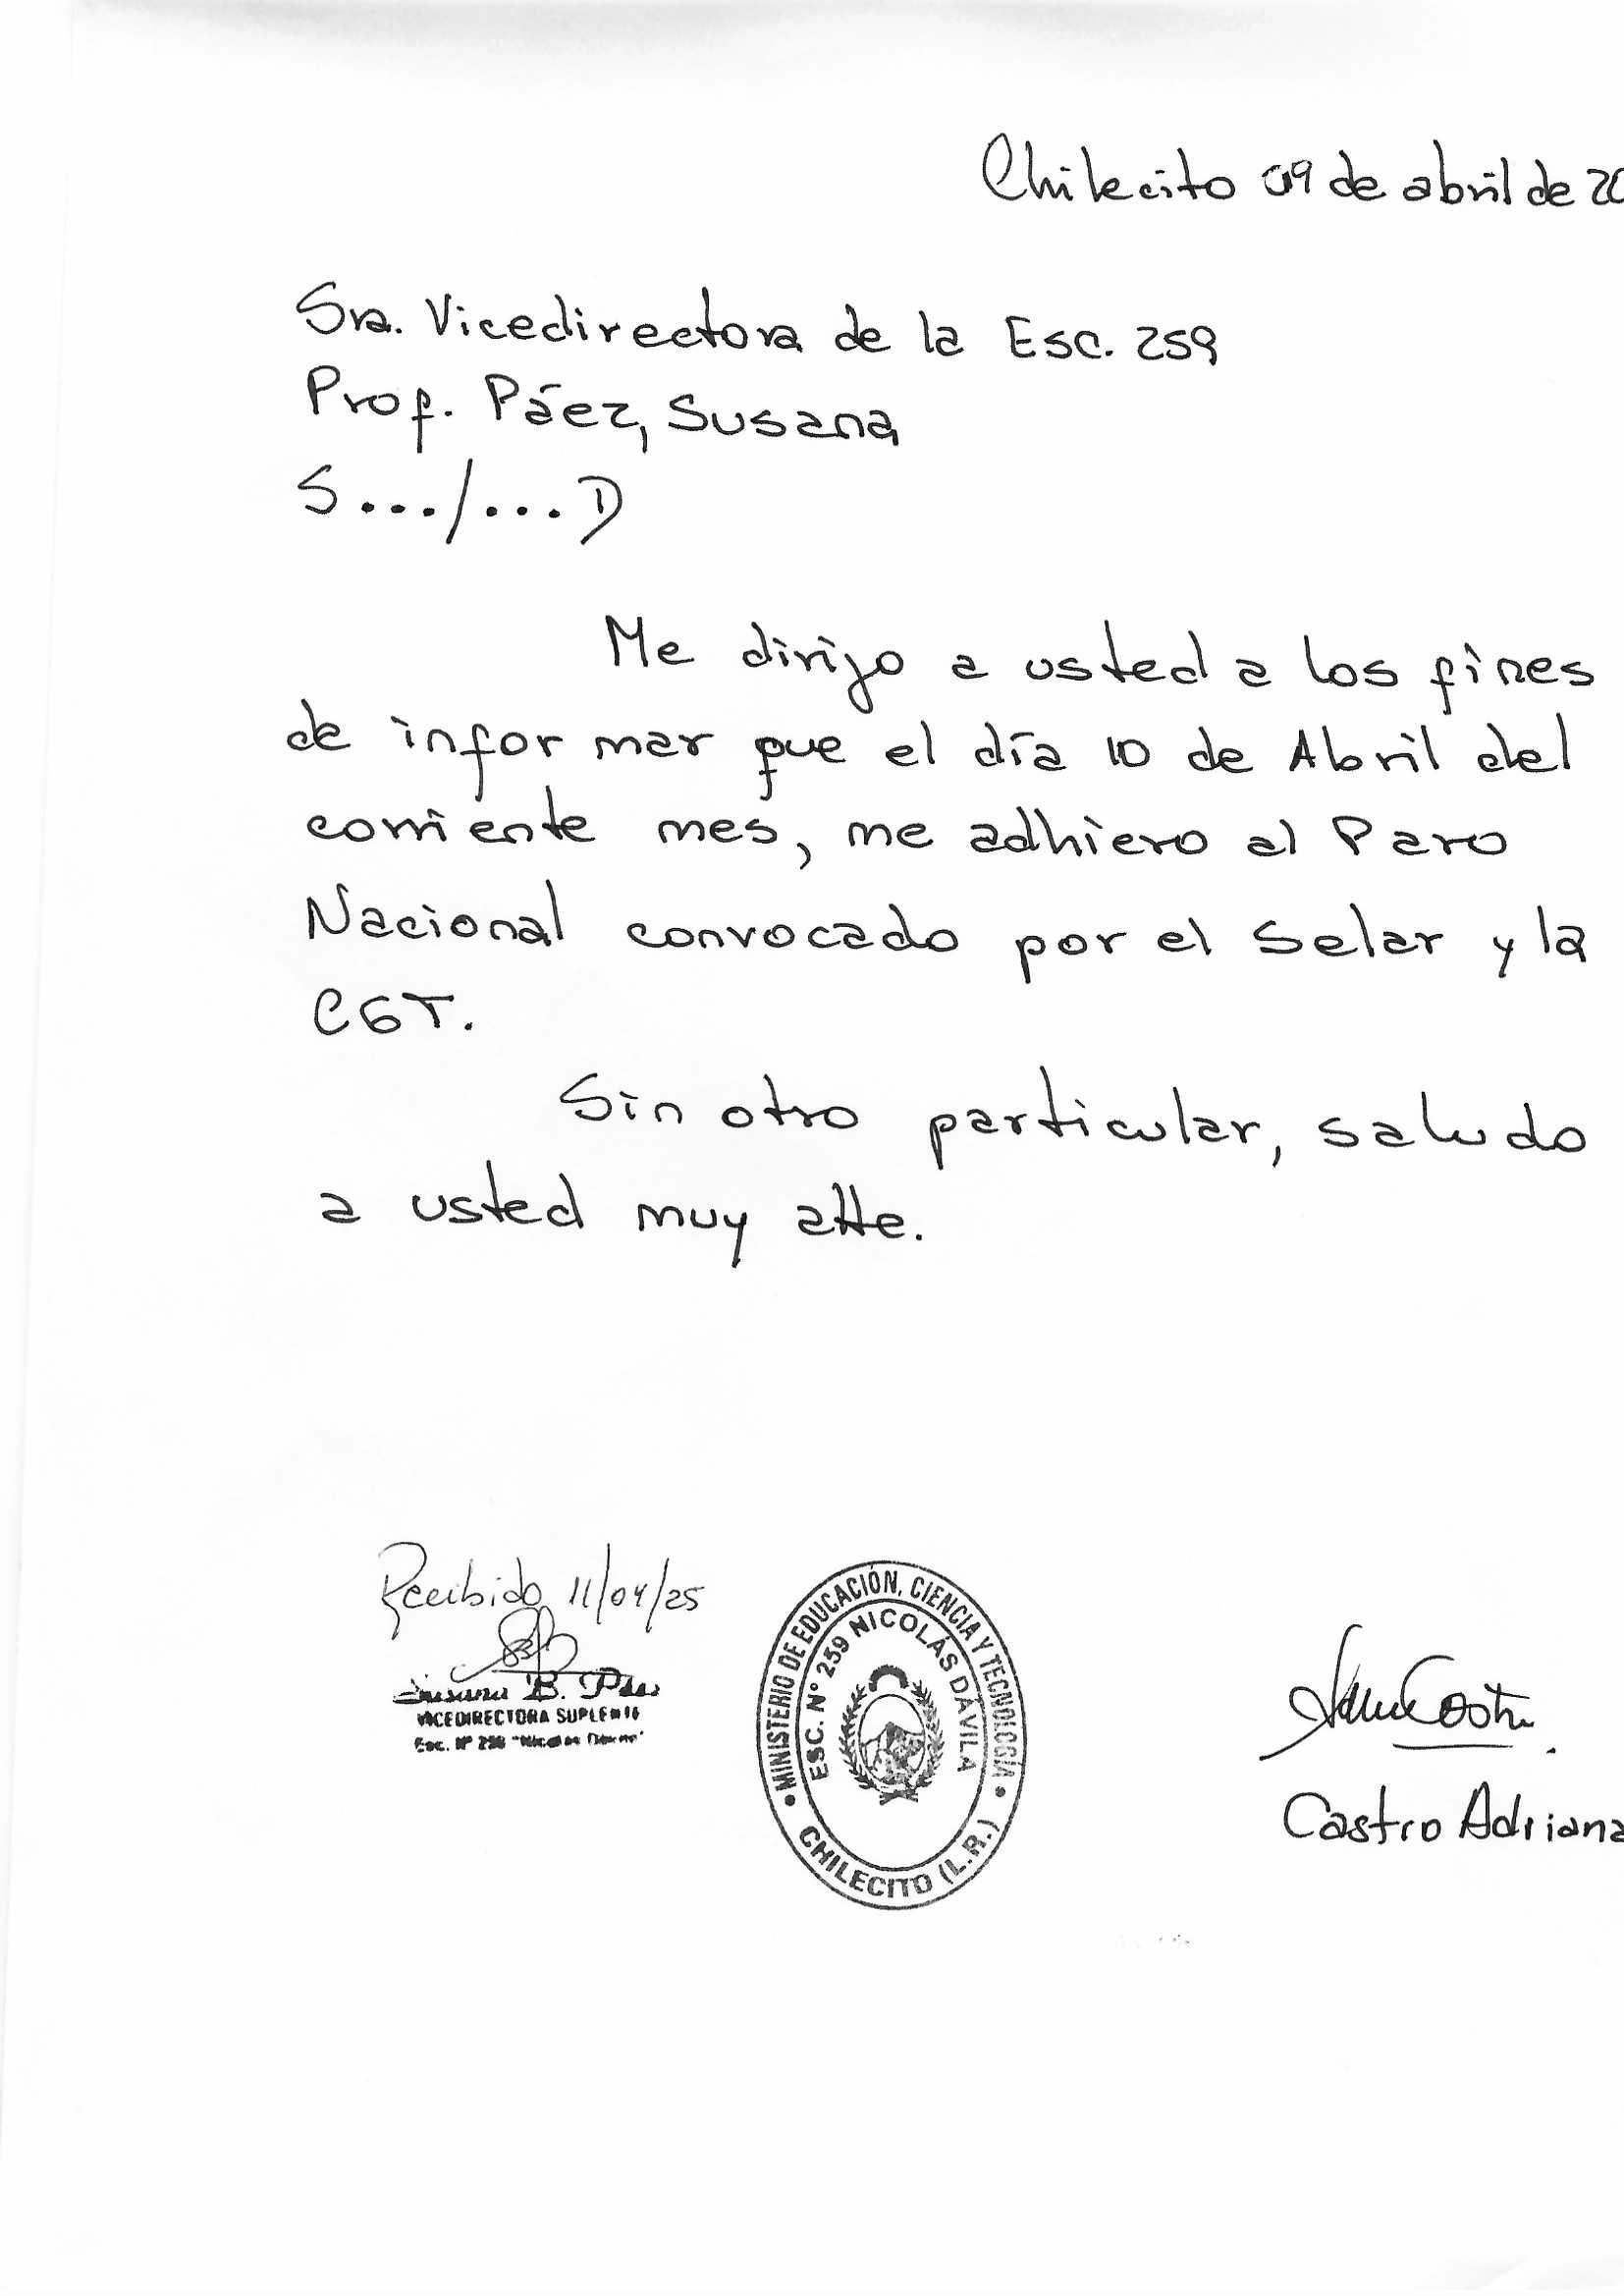 Chilecito 09 de abril de 20
Sra. Vicedirectora de la Esc. 259
Prof. Páez, Susana
S.../...D
Me dirijo a usted a los fines
de informar que el día 10 de Abril del
corriente mes, me adhiero al Paro
Nacional convocado por el Selar y la
CGT.
Sin otro particular, saludo
a usted muy atte.
Recibido 11/04/25
Susana B. Páez
VICEDIRECTORA SUPLENTE
Esc. Nº 259 "Nicolás Dávila"
• MINISTERIO DE EDUCACIÓN, CIENCIA Y TECNOLOGÍA •
ESC. Nº 259 NICOLÁS DÁVILA
CHILECITO (L.R.)
Castro Adriana